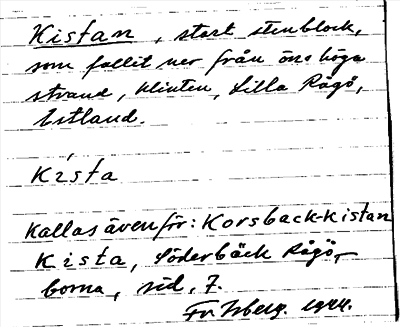 Kistan, stort stenblock,
som fallit ner från öns höga
strand, klinten, Lilla Rågö,
Estland.
Kista
Kallas även för: Korsback-kistan
Kista, Söderbäck Rågö-
borna, sid, 7.
Fr. Isberg. 1944.